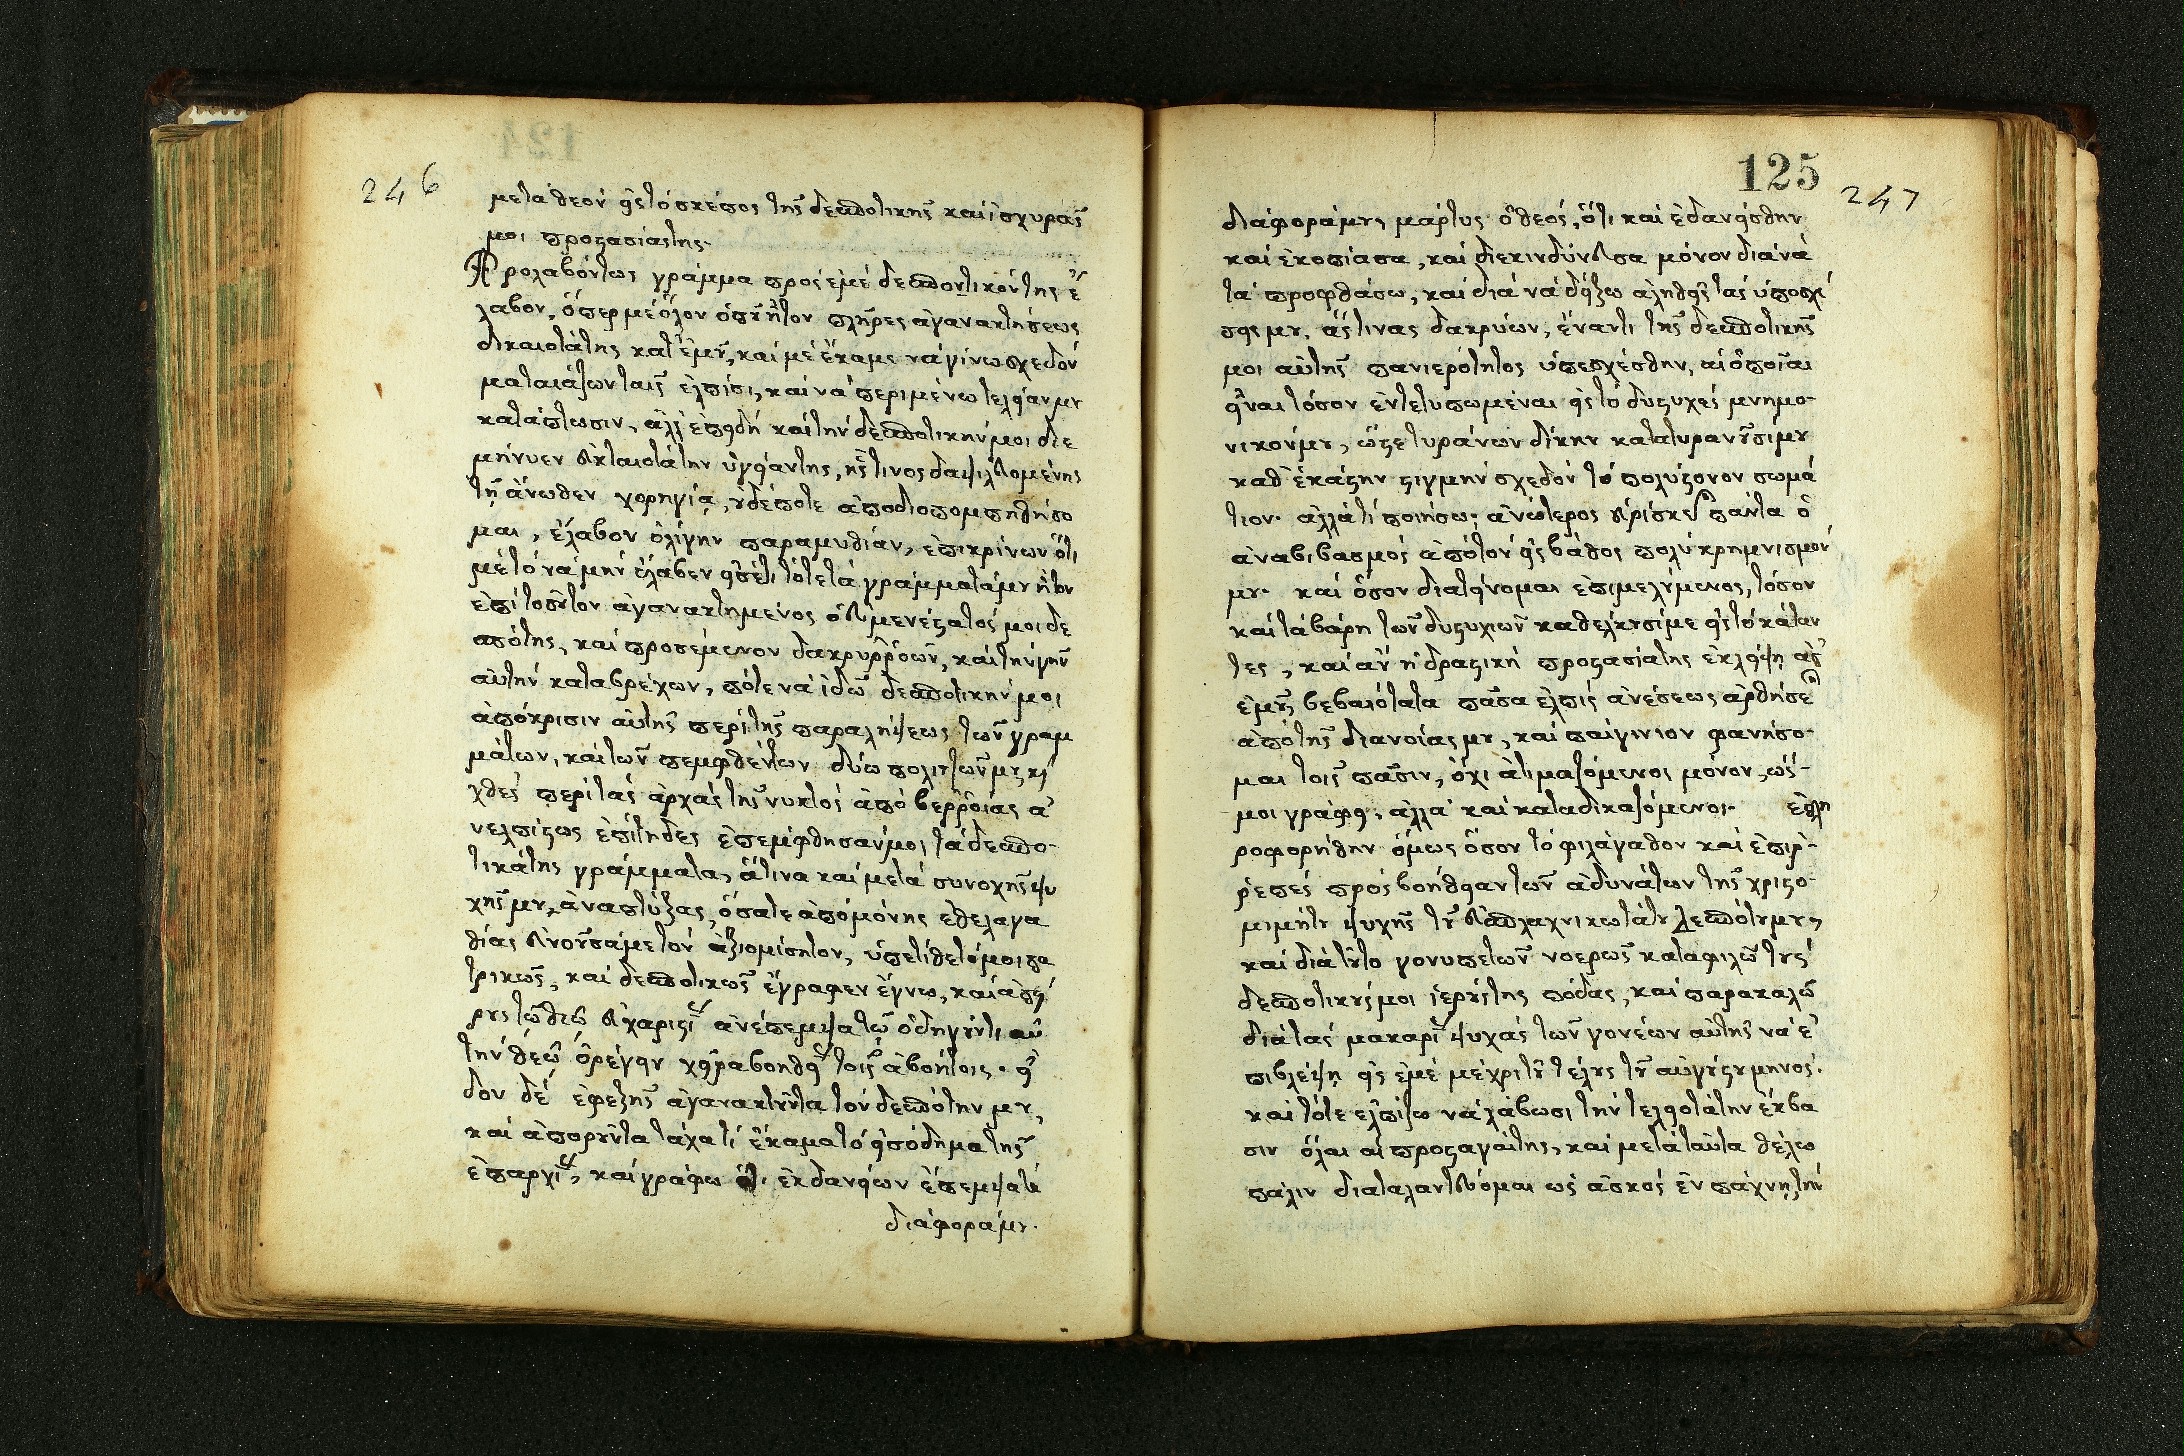 246
μετὰ θεὸν εἰς τὸ σκέπος τῆς δεσποτικῆς καὶ ἰσχυρᾶς
μοι προστασίας της.
Προλαβόντως γράμμα πρὸς ἐμὲ δεσποντικόν της ἔ
λαβον, ὅπερ μὲ ὅλον ὁποῦ ἦτον πλῆρες ἀγανακτήσεως
δικαιοτάτης κατ' ἐμοῦ, καὶ μὲ ἔκαμε νὰ γίνω σχεδὸν
ματαιάζων ταῖς ἐλπίσι, καὶ νὰ περιμένω τελείαν μου
κατάπτωσιν, ἀλλ' ἐπειδὴ καὶ τὴν δεσποτικήν μοι διε
μήνυεν εὐκταιοτάτην ὑγείαν της, ἧς τινος δαψιλευομένης
τῇ ἄνωθεν χορηγίᾳ, οὐδέποτε ἀποδιοπομπηθήσο
μαι, ἔλαβον ὀλίγην παραμυθίαν, ἐπικρίνων ὅτι
μὲ τὸ νὰ μὴν ἔλαβεν εἰσέτι τότε τὰ γράμματά μου ἦτον
ἐπὶ τοσοῦτον ἀγανακτημένος ὁ εὐμενέστατός μοι δε
σπότης, καὶ προσέμενον δακρυρροῶν, καὶ τὴν γῆν
αὐτὴν καταβρέχων, πότε νὰ ἰδῶ δεσποτικήν μοι
ἀπόκρισιν αὐτῆς περὶ τῆς παραλήψεως τῶν γραμ
μάτων, καὶ τῶν πεμφθέντων δύω πολιτζῶν μου, καὶ
χθὲς περὶ τὰς ἀρχὰς τῆς νυκτὸς ἀπὸ βερροίας ἀ
νελπίστως ἐπίτηδες ἐπεμφθησάν μοι τὰ δεσπο-
τικά της γράμματα, ἅτινα καὶ μετὰ συνοχῆς ψυ
χῆς μου, ἀναπτύξας, ὅσα τε ἀπὸ μόνης ἐθελαγα
θίας εὐνοοῦσά με τὸν ἀξιομίσητον, ὑπετίθετό μοι πα
τρικῶς, καὶ δεσποτικῶς ἔγραφεν ἔγνω, καὶ ἀπεί
ρους τῷ θεῷ εὐχαριστί ἀνέπεμψα τῷ ὁδηγοῦντι αὐ
τὴν θεῷ ὀρέγειν χεῖρα βοηθεί τοῖς ἀβοήτοις. εἶ
δον δὲ ἐφεξῆς ἀγανακτοῦντα τὸν δεσπότην μου,
καὶ ἀποροῦντα τάχα τί ἔκαμα τὸ εἰσόδημα τῆς
ἐπαρχί, καὶ γράφω ὅτι ἐκδανείων ἔπεμψα τὰ
διάφορά μου.
125
247
διάφορά μου, μάρτυς ὁ θεός, ὅτι καὶ ἐδανείσθην
καὶ ἐκοπίασα, καὶ διεκινδύνευσα μόνον διὰ νὰ
τὰ προφθάσω, καὶ διὰ νὰ δείξω ἀληθεῖς τὰς ὑποσχέ
σεις μου, ἅς τινας δακρυών, ἔναντι τῆς δεσποτικῆς
μοι αὐτῆς πανιερότητος ὑπεσχέσθην, αἱ ὁποῖαι
εἶναι τόσον ἐντετυπωμέναι εἰς τὸ δυστυχὲς μνημο-
νικόν μου, ὥστε τυράνων δίκην κατατυρανοῦσί μου
καθ' ἑκάστην στιγμὴν σχεδὸν τὸ πολύστονον σωμά
τιον. ἀλλὰ τί ποιήσω; ἀνώτερος εὑρίσκετ πάντα ὁ
ἀναβιβασμὸς ἀπὸ τὸν εἰς βάθος πολὺ κρημνισμόν
μου. καὶ ὅσον διατείνομαι ἐπιμελούμενος, τόσον
καὶ τὰ βάρη τῶν δυστυχιῶν καθελκουσί με εἰς τὸ κάταν
τες, καὶ ἂν ἡ δραστική προστασία της ἐκλείψῃ ἀπ'
ἐμοῦ, βεβαιότατα πᾶσα ἐλπὶς ἀνέσεως ἀρθήσετ
ἀπὸ τῆς διανοίας μου, καὶ παίγνιον φανήσο-
μαι τοῖς πᾶσιν, ὄχι ἀτιμαζόμενοι μόνον, ὡς
μοι γράφει, ἀλλὰ καὶ καταδικαζόμενοι. ἐπλη
ροφορήθην ὅμως ὅσον τὸ φιλάγαθον καὶ ἐπιρ-
ρεπὲς πρὸς βοήθειαν τῶν ἀδυνάτων τῆς χριστο-
μιμήτου ψυχῆς τοῦ εὐσπλαχνικωτάτου Δεσπότου μου,
καὶ διὰ τοῦτο γονυπετῶν νοερῶς καταφιλῶ τοὺς
δεσποτικούς μοι ἱερούς της πόδας, καὶ παρακαλῶ
διὰ τὰς μακαρί ψυχὰς τῶν γονέων αὐτῆς νὰ ἐ
πιβλέψῃ εἰς ἐμὲ μέχρι τοῦ τέλους τοῦ αὐγούστου μηνός.
καὶ τότε ἐλπίζω νὰ λάβωσι τὴν τελειοτάτην ἔκβα
σιν ὅλαι αἱ προσταγαί της, καὶ μετὰ ταῦτα θέλω
πάλιν διαταλαντεύομαι ὡς ἀσκὸς ἐν πάχνῃ τὴν